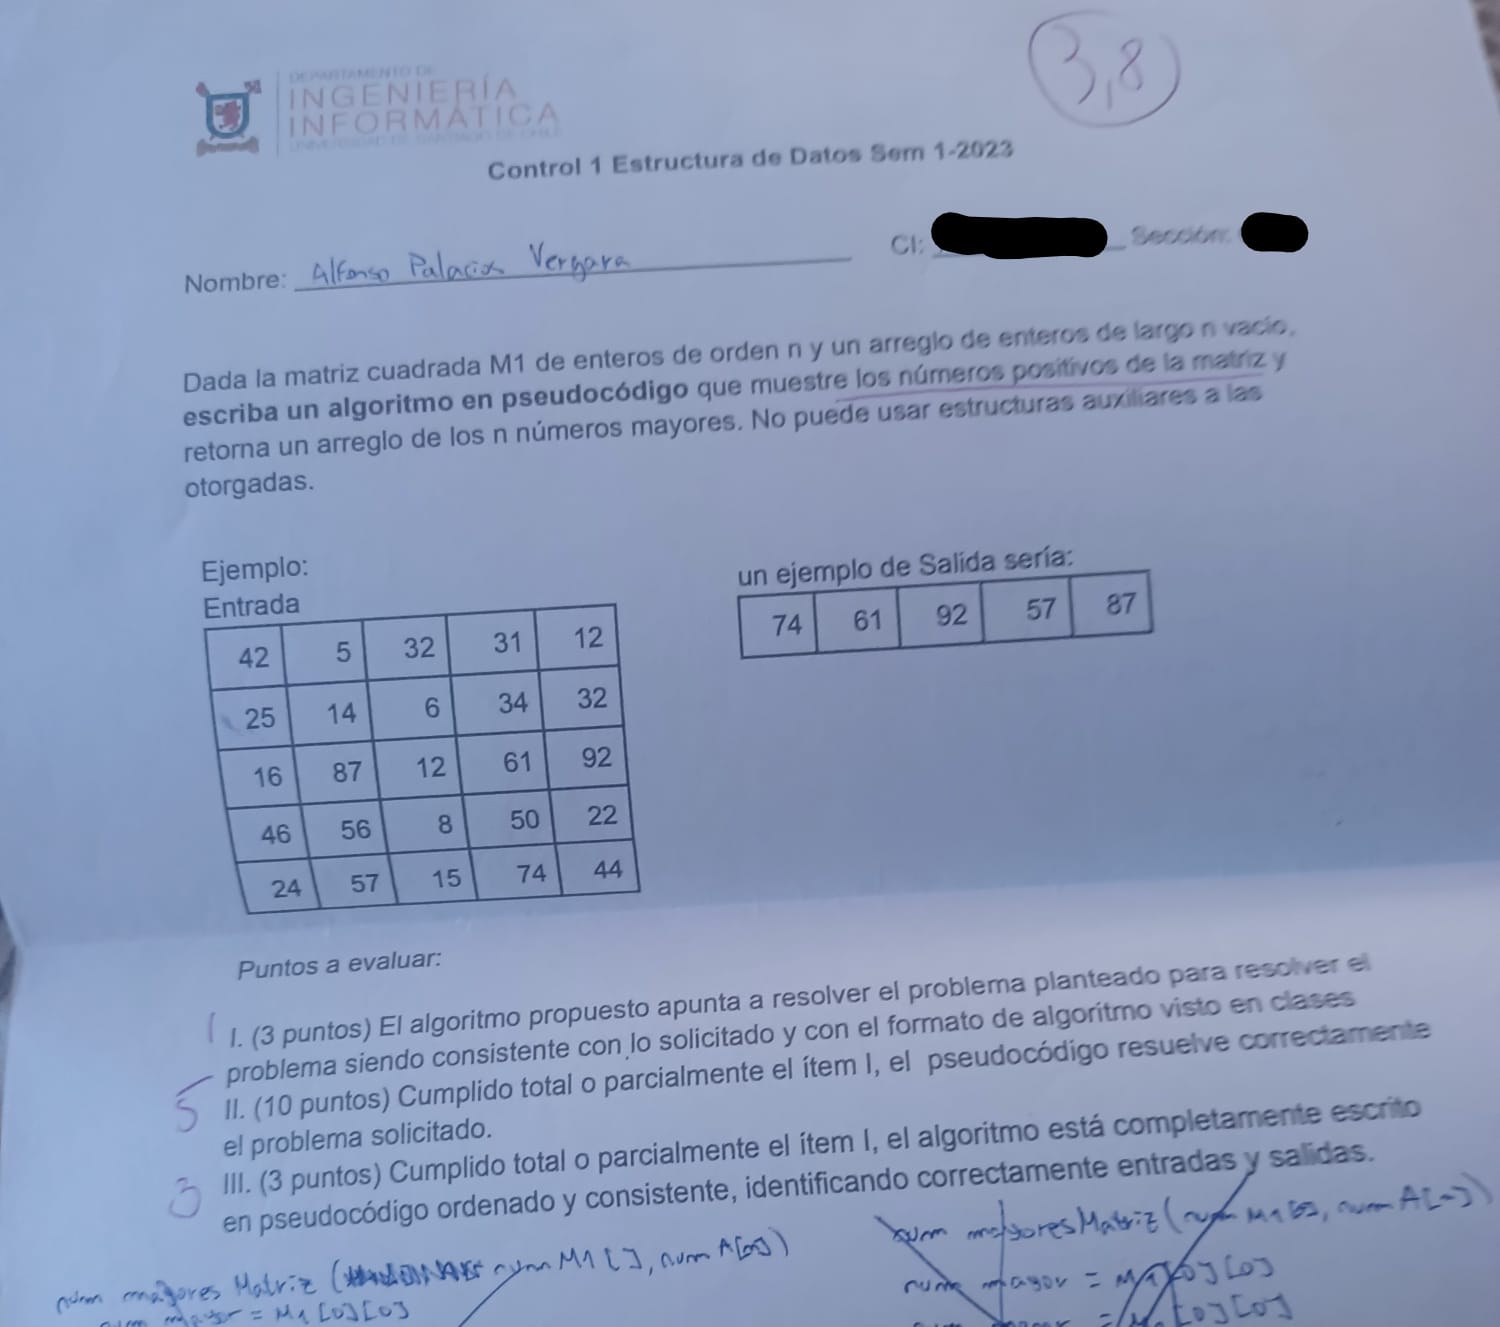 3,8
DEPARTAMENTO DE
INGENIERÍA
INFORMÁTICA
UNIVERSIDAD DE SANTIAGO DE CHILE
Control 1 Estructura de Datos Sem 1-2023
Nombre: Alfonso Palacios Vergara CI: Sección:
Dada la matriz cuadrada M1 de enteros de orden n y un arreglo de enteros de largo n vacío,
escriba un algoritmo en pseudocódigo que muestre los números positivos de la matriz y
retorna un arreglo de los n números mayores. No puede usar estructuras auxiliares a las
otorgadas.
Ejemplo:
Entrada
42 5 32 31 12
25 14 6 34 32
16 87 12 61 92
46 56 8 50 22
24 57 15 74 44
un ejemplo de Salida sería:
74 61 92 57 87
Puntos a evaluar:
1 I. (3 puntos) El algoritmo propuesto apunta a resolver el problema planteado para resolver el
problema siendo consistente con lo solicitado y con el formato de algoritmo visto en clases
5 II. (10 puntos) Cumplido total o parcialmente el ítem I, el pseudocódigo resuelve correctamente
el problema solicitado.
3 III. (3 puntos) Cumplido total o parcialmente el ítem I, el algoritmo está completamente escrito
en pseudocódigo ordenado y consistente, identificando correctamente entradas y salidas.
num mayores Matriz ( num M1 [ ], num A[n])
num mayor = M1 [0][0]
num mayoresMatriz (num M1 , num A[n])
num mayor = M1[0][0]
[0][0]